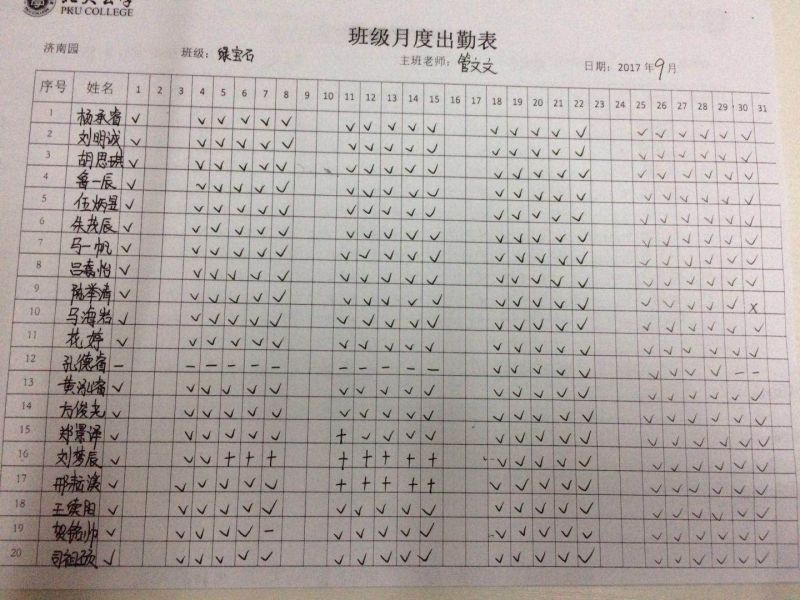 PKU COLLEGE
班级月度出勤表
济南园 班级：绿宝石 主班老师：管文文 日期：2017 年 9 月
序号 姓名 1 2 3 4 5 6 7 8 9 10 11 12 13 14 15 16 17 18 19 20 21 22 23 24 25 26 27 28 29 30 31
1 杨承睿 ✓ ✓ ✓ ✓ ✓ ✓ ✓ ✓ ✓ ✓ ✓ ✓ ✓ ✓ ✓ ✓ ✓ ✓ ✓ ✓ ✓ ✓
2 刘明诚 ✓ ✓ ✓ ✓ ✓ ✓ ✓ ✓ ✓ ✓ ✓ ✓ ✓ ✓ ✓ ✓ ✓ ✓ ✓ ✓ ✓ ✓
3 胡思琪 ✓ ✓ ✓ ✓ ✓ ✓ ✓ ✓ ✓ ✓ ✓ ✓ ✓ ✓ ✓ ✓ ✓ ✓ ✓ ✓ ✓ ✓
4 鲁一辰 ✓ ✓ ✓ ✓ ✓ ✓ ✓ ✓ ✓ ✓ ✓ ✓ ✓ ✓ ✓ ✓ ✓ ✓ ✓ ✓ ✓ ✓
5 伍炳昱 ✓ ✓ ✓ ✓ ✓ ✓ ✓ ✓ ✓ ✓ ✓ ✓ ✓ ✓ ✓ ✓ ✓ ✓ ✓ ✓ ✓ ✓
6 朱茂辰 ✓ ✓ ✓ ✓ ✓ ✓ ✓ ✓ ✓ ✓ ✓ ✓ ✓ ✓ ✓ ✓ ✓ ✓ ✓ ✓ ✓ ✓
7 马一帆 ✓ ✓ ✓ ✓ ✓ ✓ ✓ ✓ ✓ ✓ ✓ ✓ ✓ ✓ ✓ ✓ ✓ ✓ ✓ ✓ ✓ ✓
8 吕嘉怡 ✓ ✓ ✓ ✓ ✓ ✓ ✓ ✓ ✓ ✓ ✓ ✓ ✓ ✓ ✓ ✓ ✓ ✓ ✓ ✓ ✓ ✓
9 ✓ ✓ ✓ ✓ ✓ ✓ ✓ ✓ ✓ ✓ ✓ ✓ ✓ ✓ ✓ ✓ ✓ ✓ ✓ ✓ ✓ x
10 马海岩 ✓ ✓ ✓ ✓ ✓ ✓ ✓ ✓ ✓ ✓ ✓ ✓ ✓ ✓ ✓ ✓ ✓ ✓ ✓ ✓ ✓ ✓
11 花婷 ✓ ✓ ✓ ✓ ✓ ✓ ✓ ✓ ✓ ✓ ✓ ✓ ✓ ✓ ✓ ✓ ✓ ✓ ✓ ✓ ✓ ✓
12 孔德睿 – – – – – – – – – – – ✓ ✓ ✓ ✓ ✓ ✓ ✓ ✓ ✓ – –
13 黄泓睿 ✓ ✓ ✓ ✓ ✓ ✓ ✓ ✓ ✓ ✓ ✓ ✓ ✓ ✓ ✓ ✓ ✓ ✓ ✓ ✓ ✓ ✓
14 方俊尧 ✓ ✓ ✓ ✓ ✓ ✓ ✓ ✓ ✓ ✓ ✓ ✓ ✓ ✓ ✓ ✓ ✓ ✓ ✓ ✓ ✓ ✓
15 郑景泽 ✓ ✓ ✓ ✓ ✓ ✓ + ✓ ✓ ✓ ✓ ✓ ✓ ✓ ✓ ✓ ✓ ✓ ✓ ✓ ✓ ✓
16 刘梦辰 ✓ ✓ ✓ + + + + + + + + ✓ ✓ ✓ ✓ ✓ ✓ ✓ ✓ ✓ ✓ ✓
17 ✓ ✓ ✓ ✓ ✓ ✓ + + + + + ✓ ✓ ✓ ✓ ✓ ✓ ✓ ✓ ✓ ✓ ✓
18 王奕阳 ✓ ✓ ✓ ✓ ✓ ✓ ✓ ✓ ✓ ✓ ✓ ✓ ✓ ✓ ✓ ✓ ✓ ✓ ✓ ✓ ✓ ✓
19 贺铭帅 ✓ ✓ ✓ ✓ ✓ – ✓ ✓ ✓ ✓ ✓ ✓ ✓ ✓ ✓ ✓ ✓ ✓ ✓ ✓ ✓ ✓
20 司祖硕 ✓ ✓ ✓ ✓ ✓ ✓ ✓ ✓ ✓ ✓ ✓ ✓ ✓ ✓ ✓ ✓ ✓ ✓ ✓ ✓ ✓ ✓